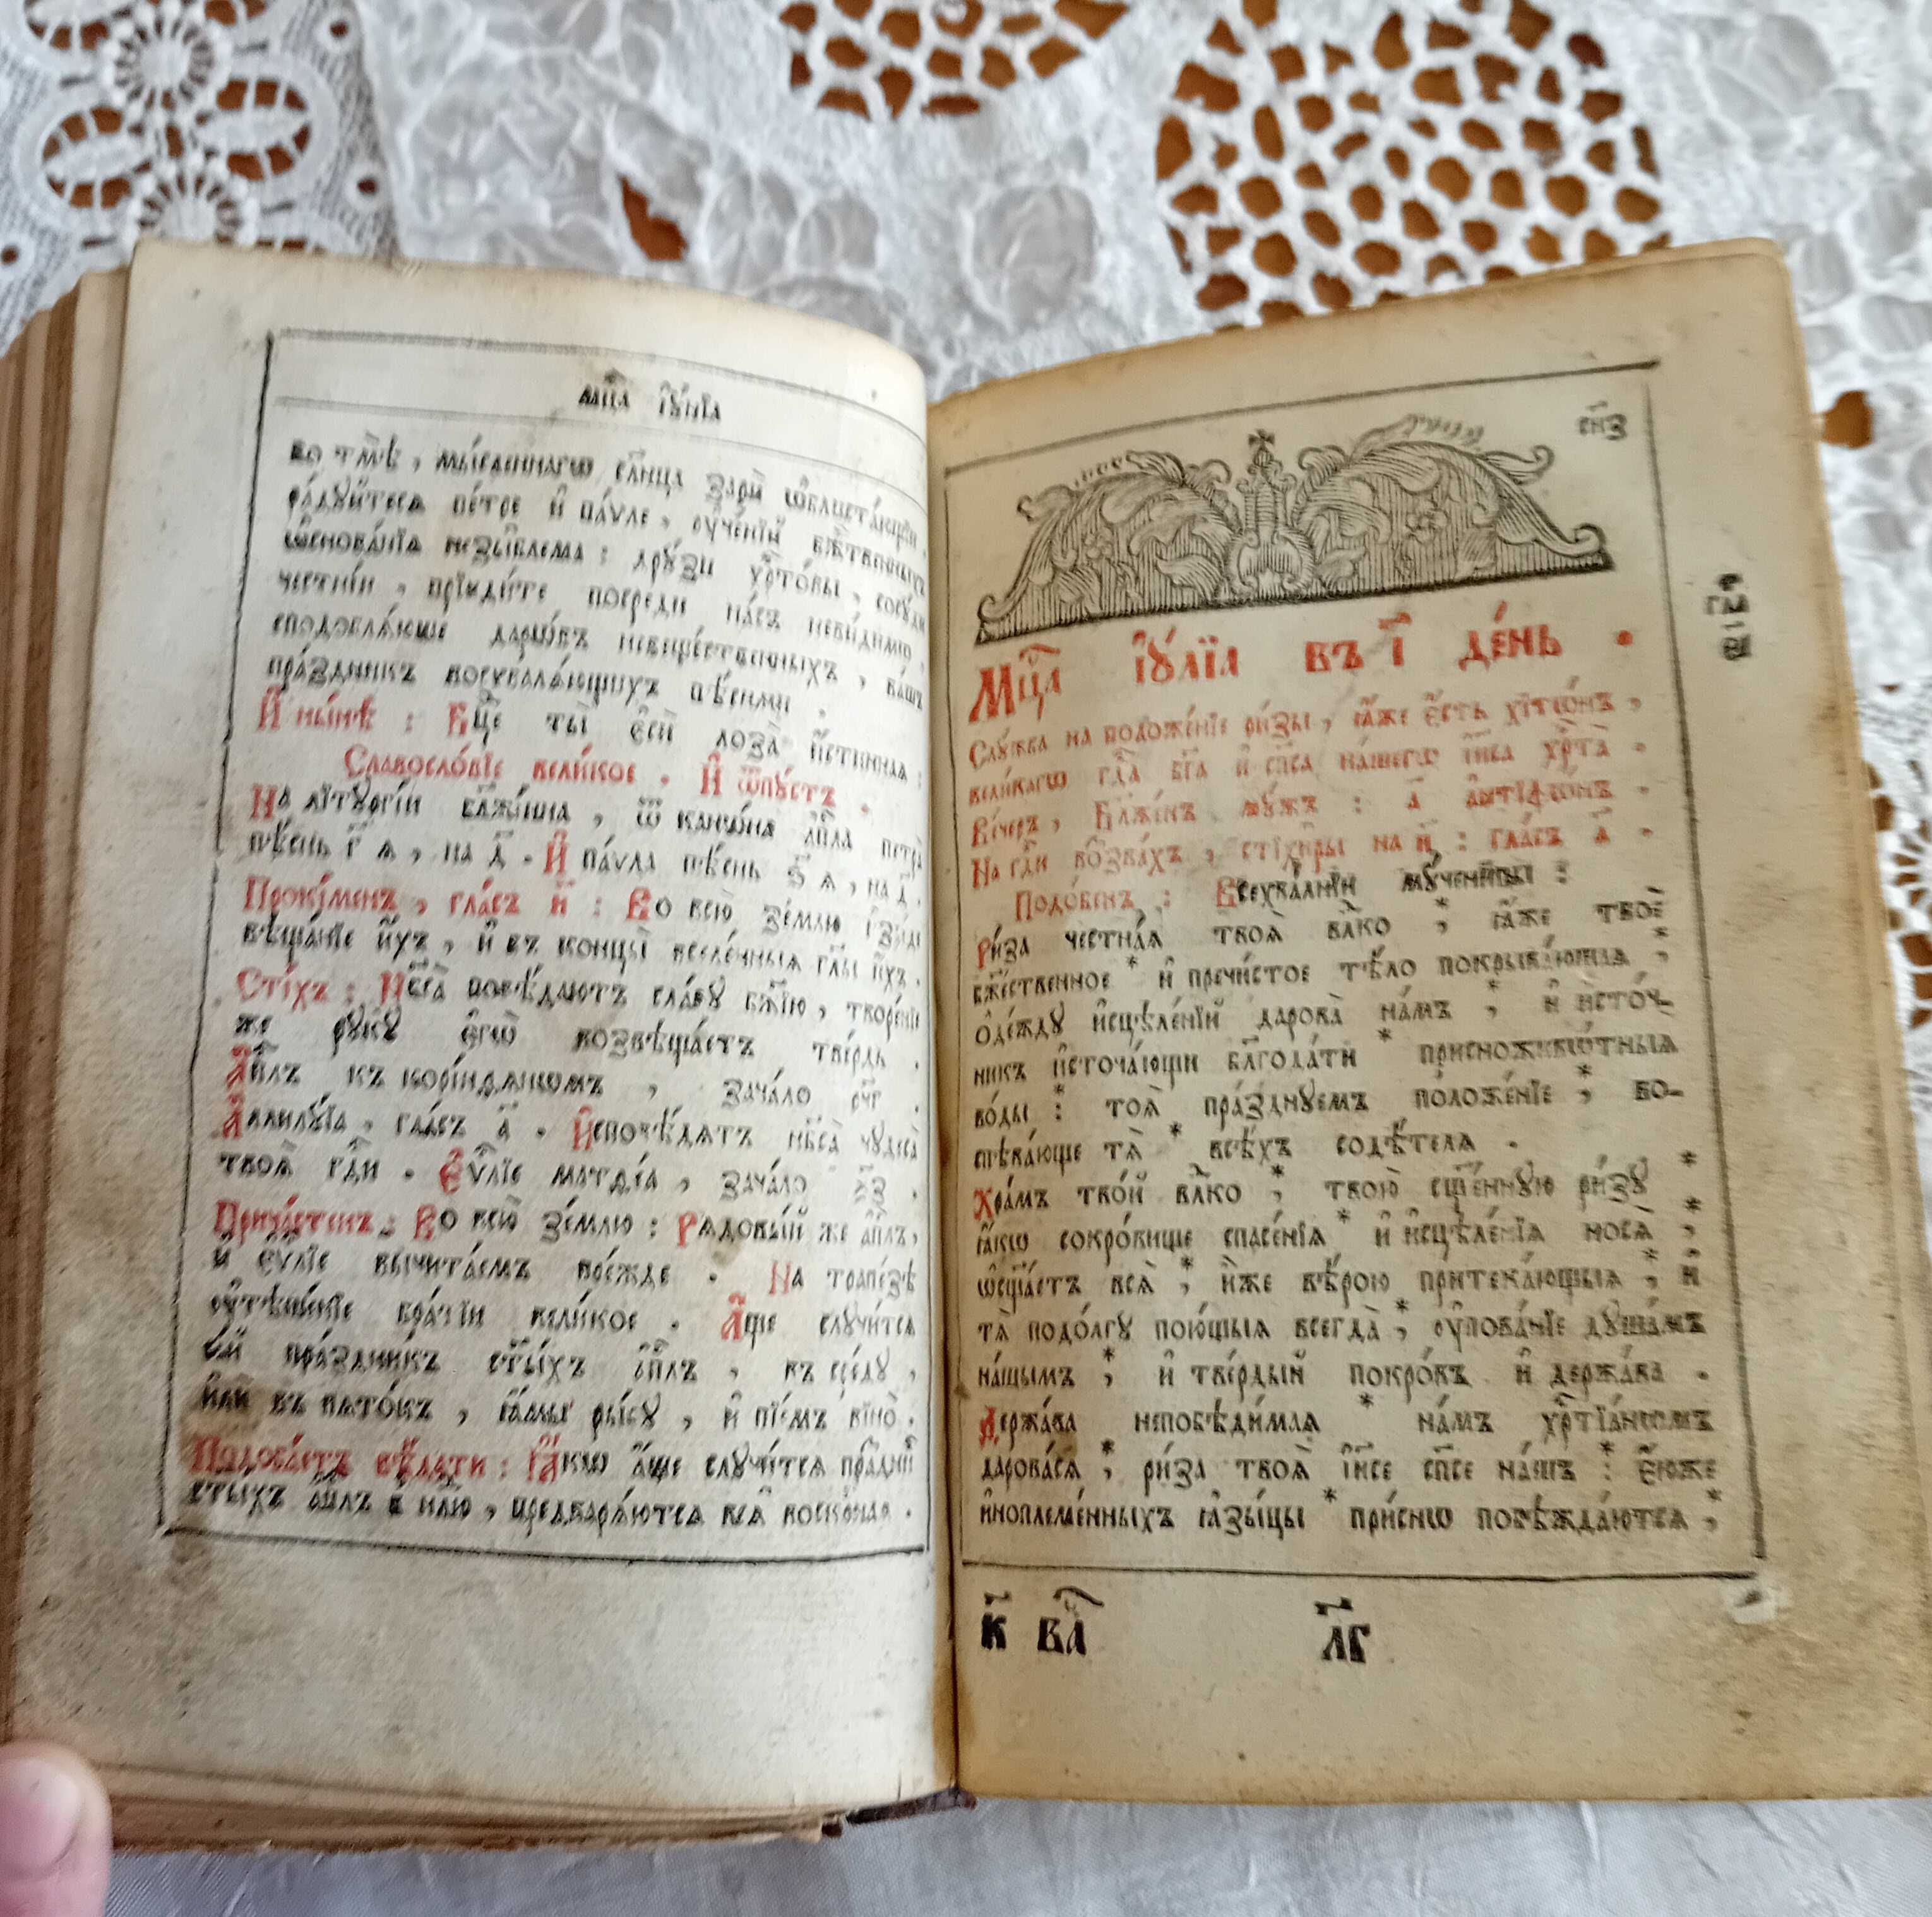 мц҃а і҆ꙋ́нїа
во тмѣ̀, мы́сленнагѡ сл҃нца зарѝ ѡ҆блиста́ющїи.
ра́дꙋйтесѧ пе́тре и҆ па́ѵле, ᲂу҆че́нїй бж҃твенныхъ
ѡ҆снова́нїѧ незы́блема: дрꙋ́зи хр҃то́вы, сосꙋ́ди
че́стнїи, прїиди́те посредѝ на́съ неви́димѡ,
сподоблѧ́юще дарѡ́въ невеще́ственныхъ, ва́шъ
пра́здникъ восхвалѧ́ющихъ пѣ́сньми.
И҆ ны́нѣ: Бц҃е ты̀ є҆сѝ лоза̀ и҆́стиннаѧ:
Славосло́вїе вели́кое. И҆ ѿпꙋ́стъ.
На літꙋргі́и бл҃же́нна, ѿ канѡ́на а҆п҃ла петра̀
пѣ́снь г҃ ѧ, на д҃. И҆ па́ѵла пѣ́снь ѕ҃ ѧ, на д҃.
Проки́менъ, гла́съ и҃: Во всю̀ зе́млю і҆зы́де
вѣща́нїе и҆́хъ, и҆ въ концы̀ вселе́нныѧ гл҃ы и҆́хъ.
Сті́хъ: Нб҃са̀ повѣ́даютъ сла́вꙋ бж҃їю, творе́нїе
же рꙋкꙋ̀ є҆гѡ̀ возвѣща́етъ тве́рдь.
А҆п҃лъ къ корі́нѳѧномъ, зача́ло рч҃г.
А҆ллилꙋ́їа, гла́съ а҃. И҆сповѣ́дѧтъ нб҃са̀ чꙋдеса̀
твоѧ̀ гд҃и. Є҆ѵ҃лїе матѳе́а, зача́ло
Прича́стенъ: Во всю̀ зе́млю: Рѧдовы́й же а҆п҃лъ,
и҆ є҆ѵ҃лїе вычита́емъ пре́жде. На трапе́зѣ
ᲂу҆тѣше́нїе бра́тїи вели́кое. А҆́ще слꙋчи́тсѧ
се́й пра́здникъ ст҃ы́хъ а҆п҃лъ, въ сре́дꙋ,
и҆лѝ въ пѧто́къ, ꙗ҆ди́мъ ры́бꙋ, и҆ пїе́мъ вїно̀.
Подоба́етъ вѣ́дати: Ꙗ҆́кѡ а҆́ще слꙋчи́тсѧ пра́дни
ст҃ы́хъ а҆п҃лъ в нл҃ю, предварѧ́ютсѧ всѧ̑ воскр҃наѧ.
сн҃з
Мц҃а і҆ꙋ́лїа въ і҃ де́нь.
Слꙋ́жба на положе́нїе ри́зы, ꙗ҆́же є҆́сть хїтѡ́нъ,
вели́кагѡ гд҃а бг҃а и҆ сп҃са на́шегѡ і҆и҃са хр҃та̀.
Ве́черъ, Бл҃же́нъ мꙋ́жъ: а҃ а҆нтїфѡ́нъ.
На гд҃и возва́хъ, стїхи́ры на и҃: гла́съ д҃.
Подо́бенъ: Всехва́лнїи мꙋ́ченицы:
Ри́за честна́ѧ твоѧ̀ вл҃ко * ꙗ҆́же твоѐ
бж҃е́ственное * и҆ пречи́стое тѣ́ло покрыва́ющаѧ *
ѻ҆де́ждꙋ и҆сцѣле́нїй дарова̀ на́мъ * и҆ и҆сто́ч-
никъ и҆сточа́ющи бл҃года́ти * присноживѡ́тныѧ
во́ды: тоѧ̀ пра́зднꙋемъ положе́нїе * во-
спѣва́юще тѧ̀ * всѣ́хъ содѣ́телѧ.
Хра́мъ тво́й вл҃ко * твою̀ сщ҃е́ннꙋю ри́зꙋ *
ꙗ҆́кѡ сокро́вище спасе́нїѧ * и҆ и҆сцѣле́нїѧ носѧ̀ *
ѡ҆сщ҃а́етъ всѧ̀ * и҆̀же вѣ́рою притека́ющыѧ * и҆
тѧ̀ подо́лгꙋ пою́щыѧ всегда̀ * ᲂу҆пова́нїе дꙋша́мъ
на́шымъ * и҆ тве́рдый покро́въ и҆ держа́ва.
Держа́ва непобѣди́маѧ * на́мъ хр҃тїа́нѡмъ
дарова́сѧ * ри́за твоѧ̀ і҆и҃се сп҃се на́шъ: є҆́юже
и҆ноплеме́нныхъ ꙗ҆зы́цы * при́снѡ побѣжда́ютсѧ *
к҃ вл҃а л҃г